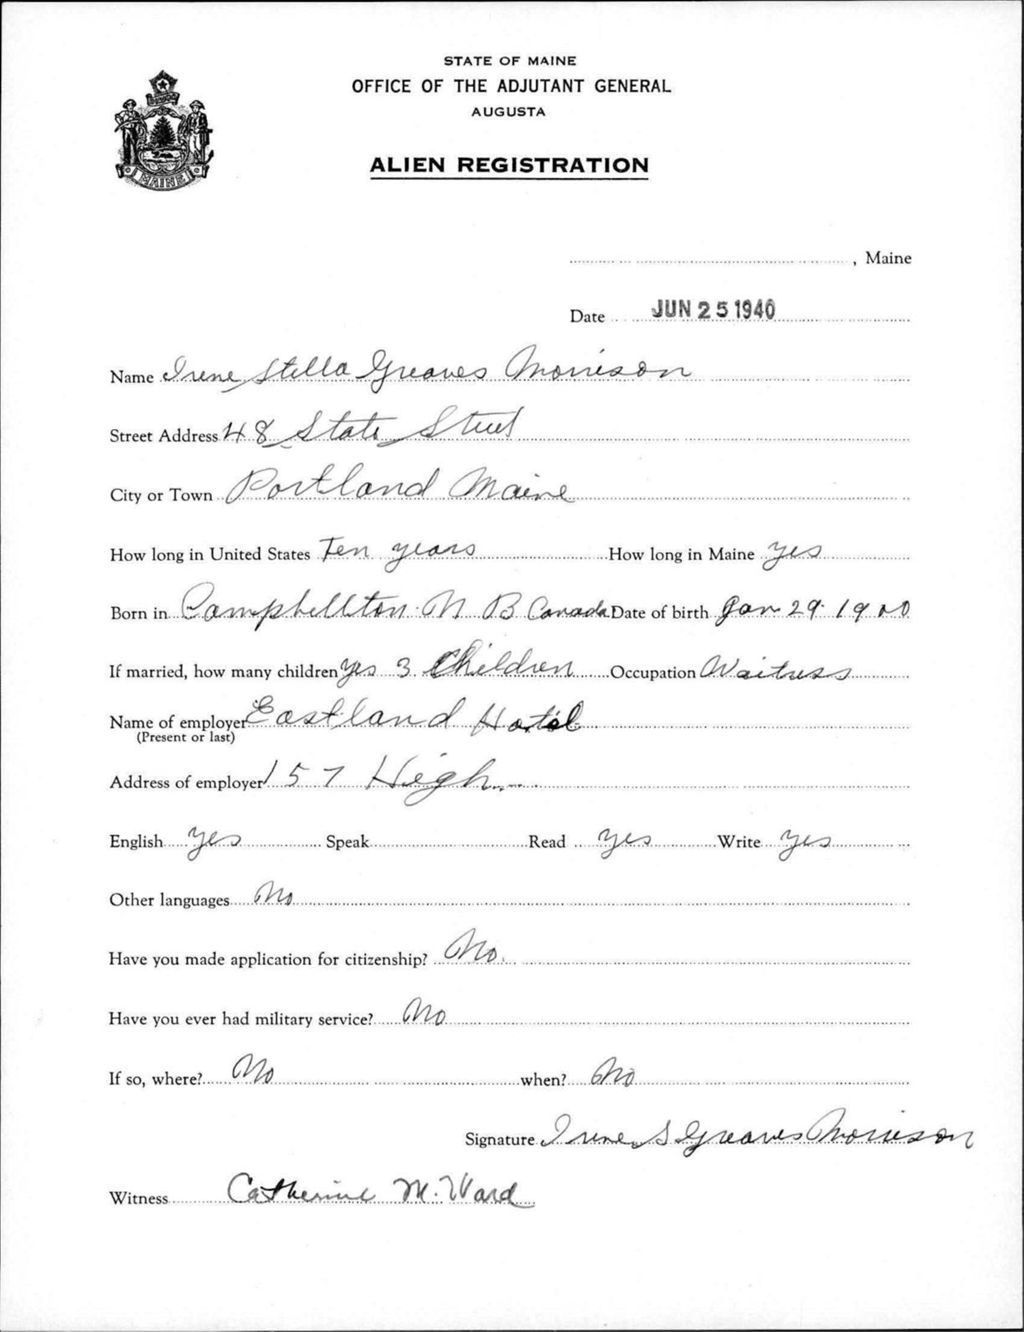 STATE OF MAINE
OFFICE OF THE ADJUTANT GENERAL
AUGUSTA
ALIEN REGISTRATION
MAINE
, Maine
Date JUN 25 1940
Name Irene Stella Greaves Morrison
Street Address 48 State Street
City or Town Portland Maine
How long in United States Ten years How long in Maine yes
Born in Campbellton N B Canada Date of birth Jan 29 1900
If married, how many children yes 3 Children Occupation Waitress
Name of employer Eastland Hotel
(Present or last)
Address of employer 157 High
English yes Speak Read yes Write yes
Other languages No
Have you made application for citizenship? No.
Have you ever had military service? No
If so, where? No when? No
Signature Irene S Greaves Morrison
Witness Catherine M. Ward